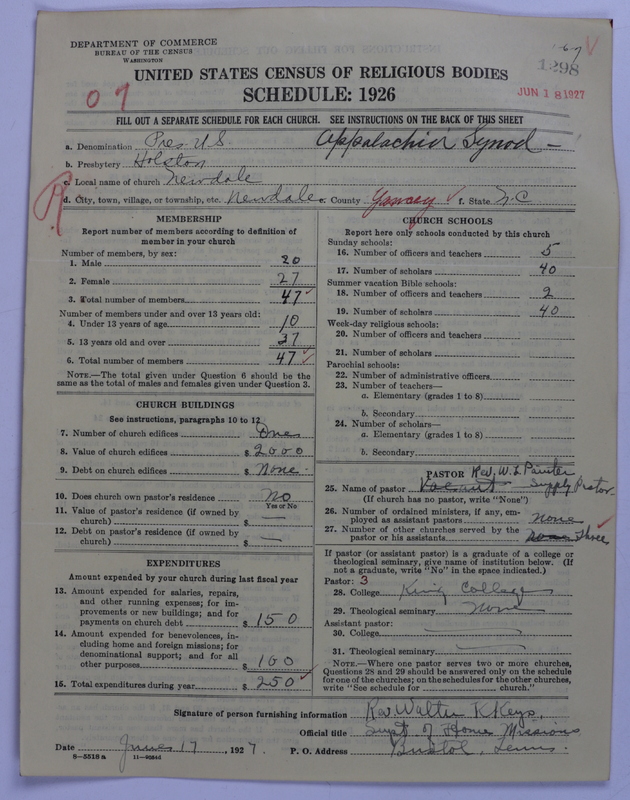 DEPARTMENT OF COMMERCE
BUREAU OF THE CENSUS
WASHINGTON
1-6-7 V
1298
UNITED STATES CENSUS OF RELIGIOUS BODIES
SCHEDULE: 1926
07
JUN 18 1927
FILL OUT A SEPARATE SCHEDULE FOR EACH CHURCH. SEE INSTRUCTIONS ON THE BACK OF THIS SHEET
a. Denomination Pres. U.S. Appalachia Synod
b. Presbytery Holston
c. Local name of church Newdale
d. City, town, village, or township, etc. Newdale e. County Yancey f. State N.C
MEMBERSHIP
Report number of members according to definition of
member in your church
Number of members, by sex:
1. Male 20
2. Female 27
3. Total number of members 47
Number of members under and over 13 years old:
4. Under 13 years of age 10
5. 13 years old and over 37
6. Total number of members 47
NOTE.—The total given under Question 6 should be the
same as the total of males and females given under Question 3.
CHURCH BUILDINGS
See instructions, paragraphs 10 to 12
7. Number of church edifices One
8. Value of church edifices $ 2000
9. Debt on church edifices $ None
10. Does church own pastor's residence No
Yes or No
11. Value of pastor's residence (if owned by
church) $ —
12. Debt on pastor's residence (if owned by
church) $ —
EXPENDITURES
Amount expended by your church during last fiscal year
13. Amount expended for salaries, repairs,
and other running expenses; for im-
provements or new buildings; and for
payments on church debt $ 150
14. Amount expended for benevolences, in-
cluding home and foreign missions; for
denominational support; and for all
other purposes $ 100
15. Total expenditures during year $ 250
CHURCH SCHOOLS
Report here only schools conducted by this church
Sunday schools:
16. Number of officers and teachers 5
17. Number of scholars 40
Summer vacation Bible schools:
18. Number of officers and teachers 2
19. Number of scholars 40
Week-day religious schools:
20. Number of officers and teachers
21. Number of scholars
Parochial schools:
22. Number of administrative officers
23. Number of teachers—
a. Elementary (grades 1 to 8)
b. Secondary
24. Number of scholars—
a. Elementary (grades 1 to 8)
b. Secondary
PASTOR Rev. W. L. Painter
25. Name of pastor Vacant Supply Pastor
(If church has no pastor, write "None")
26. Number of ordained ministers, if any, em-
ployed as assistant pastors None
27. Number of other churches served by the
pastor or his assistants Three
If pastor (or assistant pastor) is a graduate of a college or
theological seminary, give name of institution below. (If
not a graduate, write "No" in the space indicated.)
Pastor: 3
28. College King College
29. Theological seminary None
Assistant pastor:
30. College —
31. Theological seminary —
NOTE.—Where one pastor serves two or more churches,
Questions 28 and 29 should be answered only on the schedule
for one of the churches; on the schedules for the other churches,
write "See schedule for church."
Signature of person furnishing information Rev Walter K Keys,
Official title Supt of Home Missions
Date June 17, 1927. P. O. Address Bristol, Tenn.
8—5518 a 11—9084d